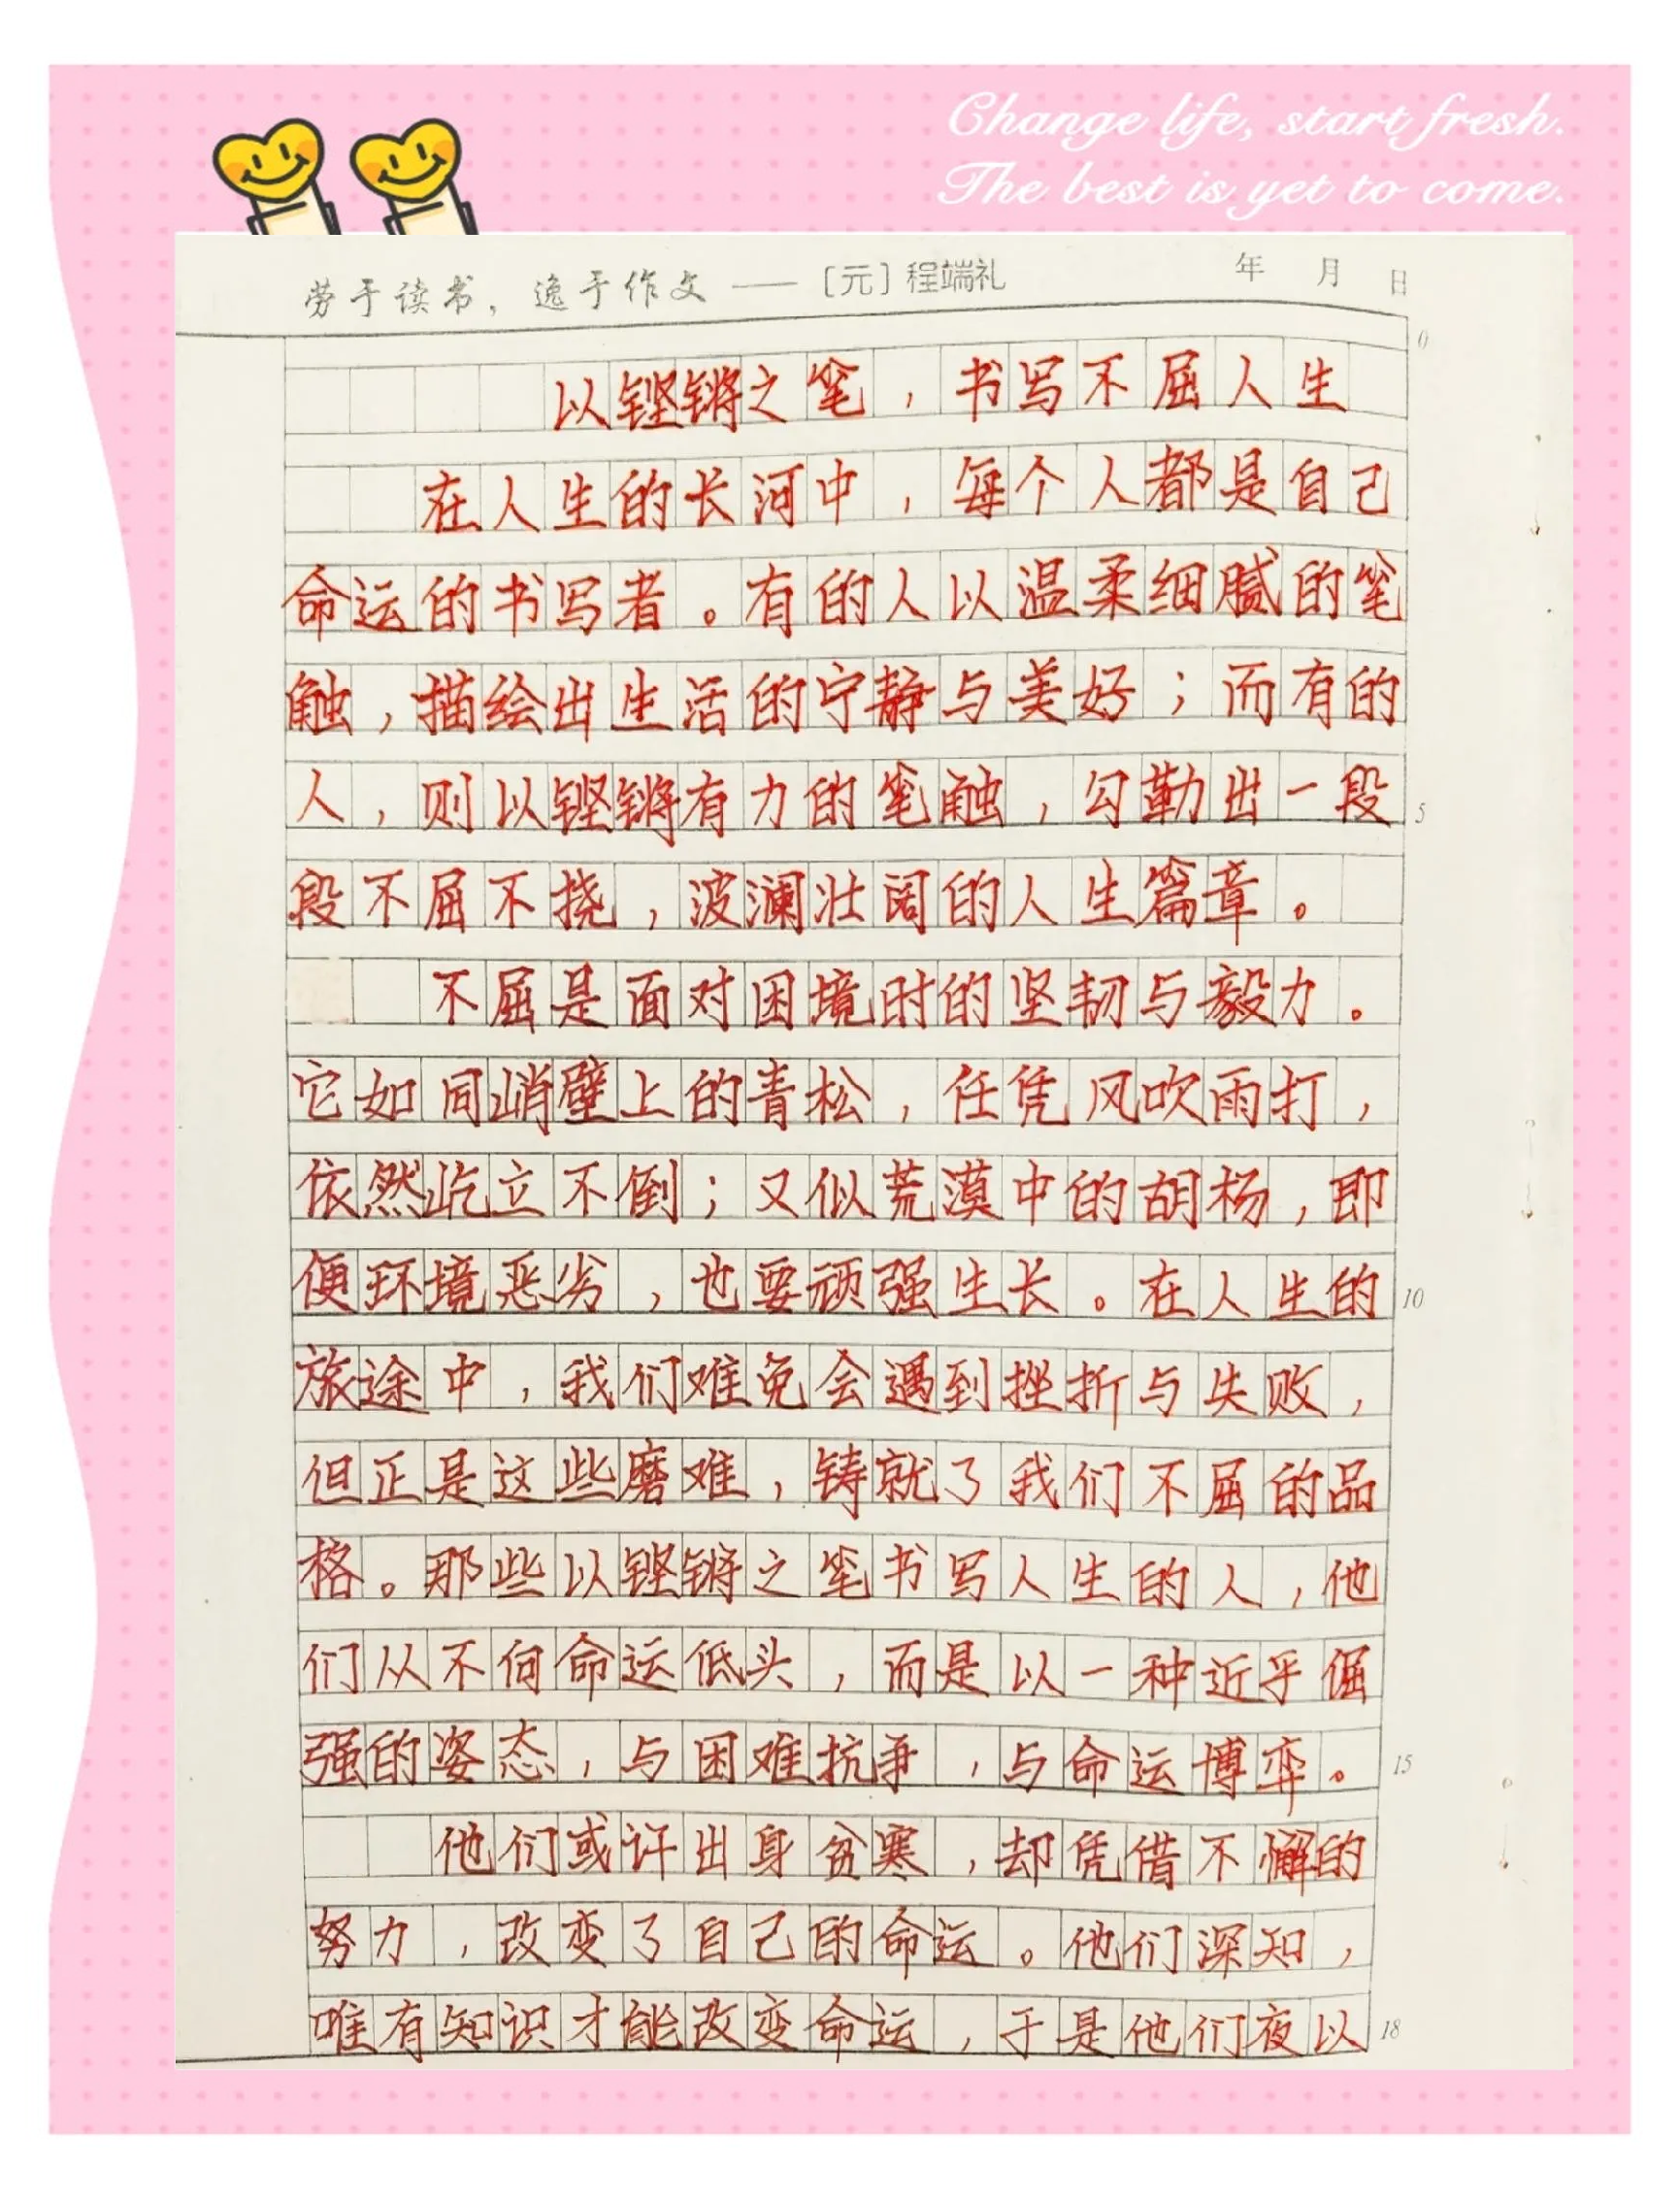 Change life, start fresh.
The best is yet to come.
劳于读书，逸于作文 —— 〔元〕程端礼 年 月 日
0
以铿锵之笔，书写不屈人生
在人生的长河中，每个人都是自己
命运的书写者。有的人以温柔细腻的笔
触，描绘出生活的宁静与美好；而有的
人，则以铿锵有力的笔触，勾勒出一段 5
段不屈不挠，波澜壮阔的人生篇章。
不屈是面对困境时的坚韧与毅力。
它如同峭壁上的青松，任凭风吹雨打，
依然屹立不倒；又似荒漠中的胡杨，即
便环境恶劣，也要顽强生长。在人生的 10
旅途中，我们难免会遇到挫折与失败，
但正是这些磨难，铸就了我们不屈的品
格。那些以铿锵之笔书写人生的人，他
们从不向命运低头，而是以一种近乎倔
强的姿态，与困难抗争，与命运博弈。 15
他们或许出身贫寒，却凭借不懈的
努力，改变了自己的命运。他们深知，
唯有知识才能改变命运，于是他们夜以 18